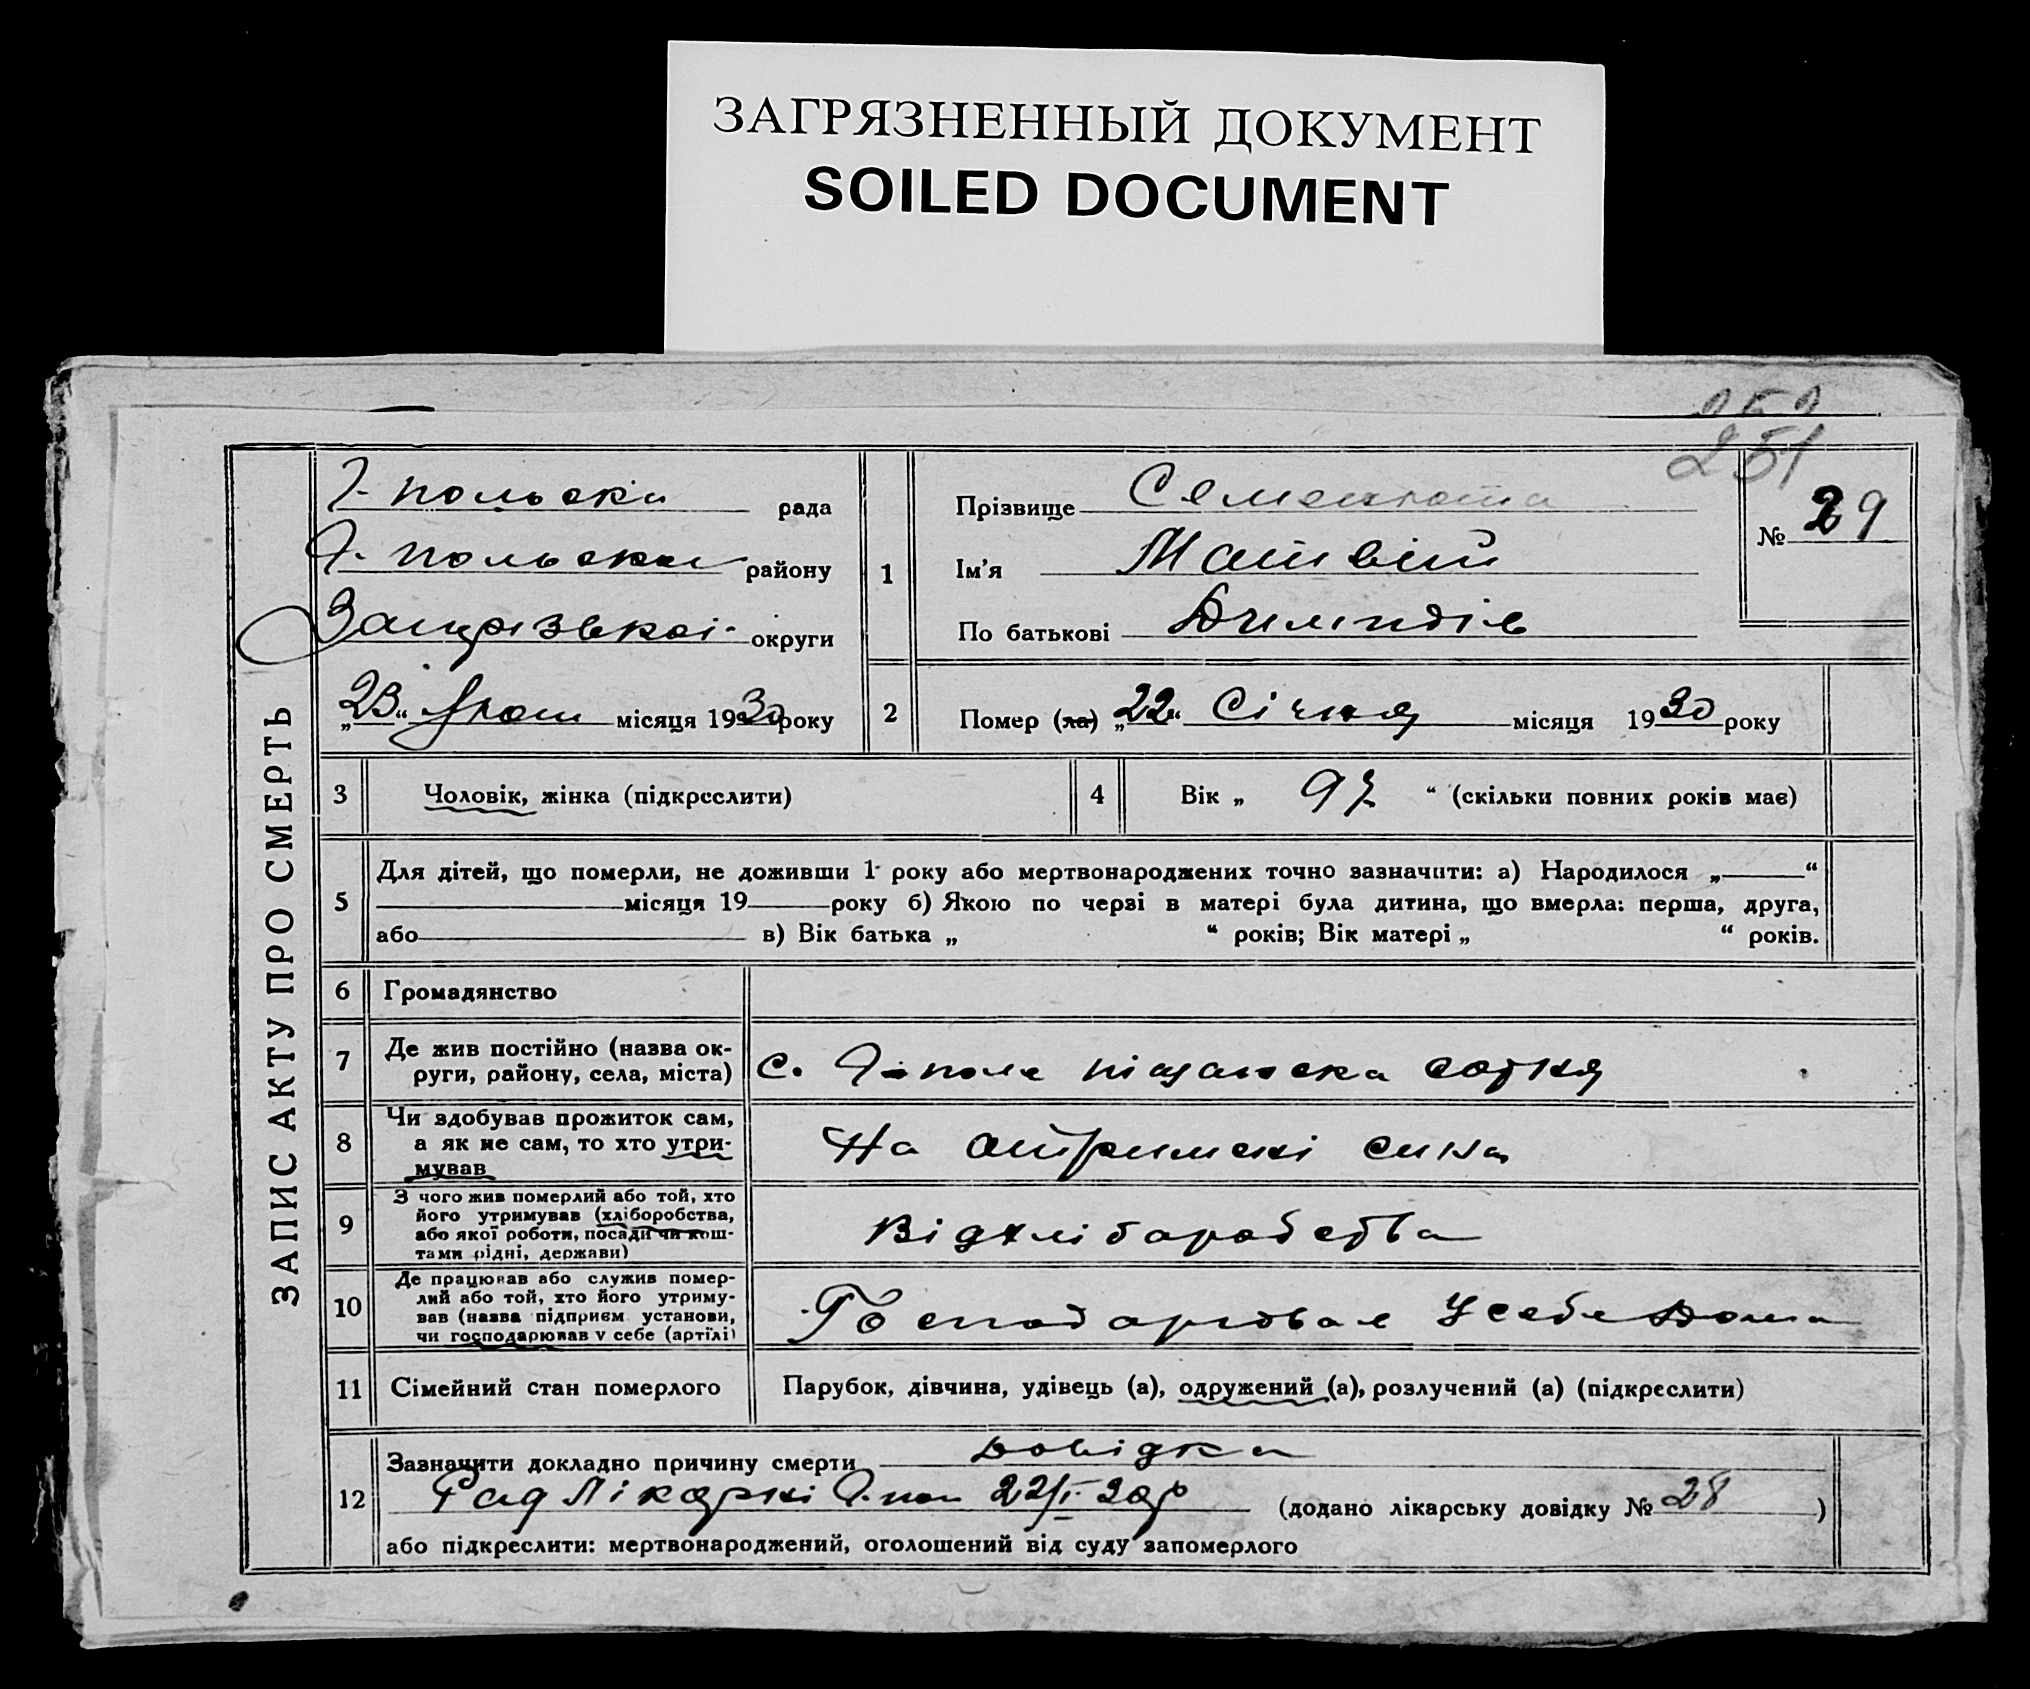 ЗАГРЯЗНЕННЫЙ ДОКУМЕНТ
SOILED DOCUMENT
251
ЗАПИС АКТУ ПРО СМЕРТЬ
Г-польська рада
Г-польська району
округи
„23“ місяця 1930 року
1
Прізвище
Ім'я Матвій
По батькові
№ 29
2 Помер (ла) „22“ Січня місяця 1930 року
3 Чоловік, жінка (підкреслити)
4 Вік „ 97 “ (скільки повних років має)
5 Для дітей, що померли, не доживши 1 року або мертвонароджених точно зазначити: а) Народилося „ “
місяця 19 року б) Якою по черзі в матері була дитина, що вмерла: перша, друга,
або в) Вік батька „ “ років; Вік матері „ “ років.
6 Громадянство
7 Де жив постійно (назва ок-
руги, району, села, міста) с. Г-поле сотня
8 Чи здобував прожиток сам,
а як не сам, то хто утри-
мував
На отриманні сина
9 З чого жив померлий або той, хто
його утримував (хліборобства,
або якої роботи, посади чи кош-
тами рідні, держави)
Від хліборобства
10 Де працював або служив помер-
лий або той, хто його утриму-
вав (назва підприєм установи,
чи господарював у себе (артілі)
Господарював У себе Дома
11 Сімейний стан померлого Парубок, дівчина, удівець (а), одружений (а), розлучений (а) (підкреслити)
12 Зазначити докладно причину смерти Довідка
Рад Лікарні Г-пол 22/I-30р (додано лікарську довідку № 28 )
або підкреслити: мертвонароджений, оголошений від суду запомерлого